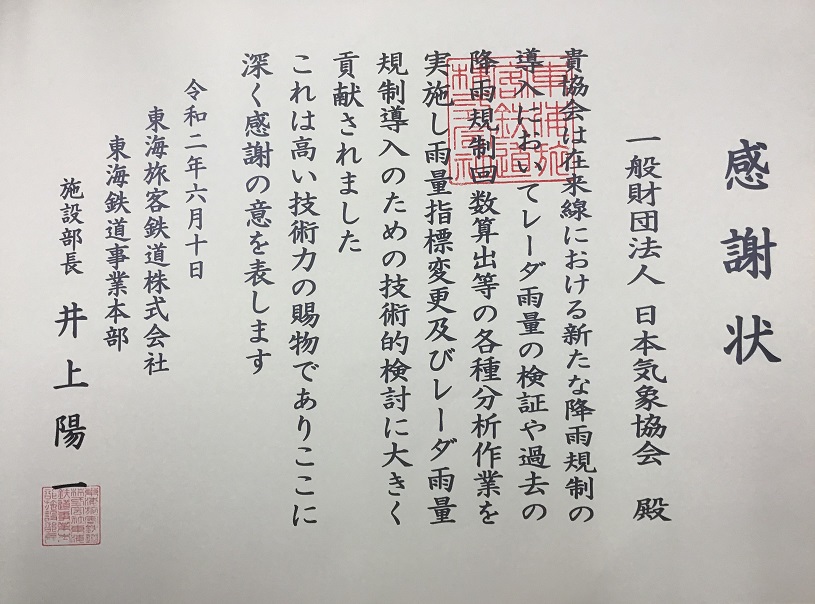 感謝状
一般財団法人 日本気象協会 殿
貴協会は在来線における新たな降雨規制の
導入においてレーダ雨量の検証や過去の
降雨規制回数算出等の各種分析作業を
実施し雨量指標変更及びレーダ雨量
規制導入のための技術的検討に大きく
貢献されました
これは高い技術力の賜物でありここに
深く感謝の意を表します
令和二年六月十日
東海旅客鉄道株式会社
東海鉄道事業本部
施設部長 井上陽一